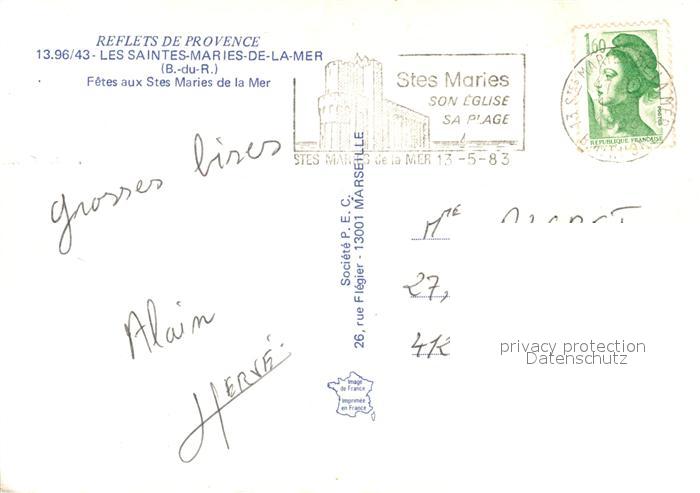 REFLETS DE PROVENCE
13.96/43 - LES SAINTES-MARIES-DE-LA-MER
(B.-du-R.)
Fêtes aux Stes Maries de la Mer
Stes Maries
SON ÉGLISE
SA PLAGE
STES MARIES de la MER 13 -5-83
1,60
REPUBLIQUE FRANÇAISE
grosses bises
Alain
HERVÉ.
Société P. E. C.
26, rue Flégier - 13001 MARSEILLE
Mme
27,
412
privacy protection
Datenschutz
Image
de France
Imprimée
en France